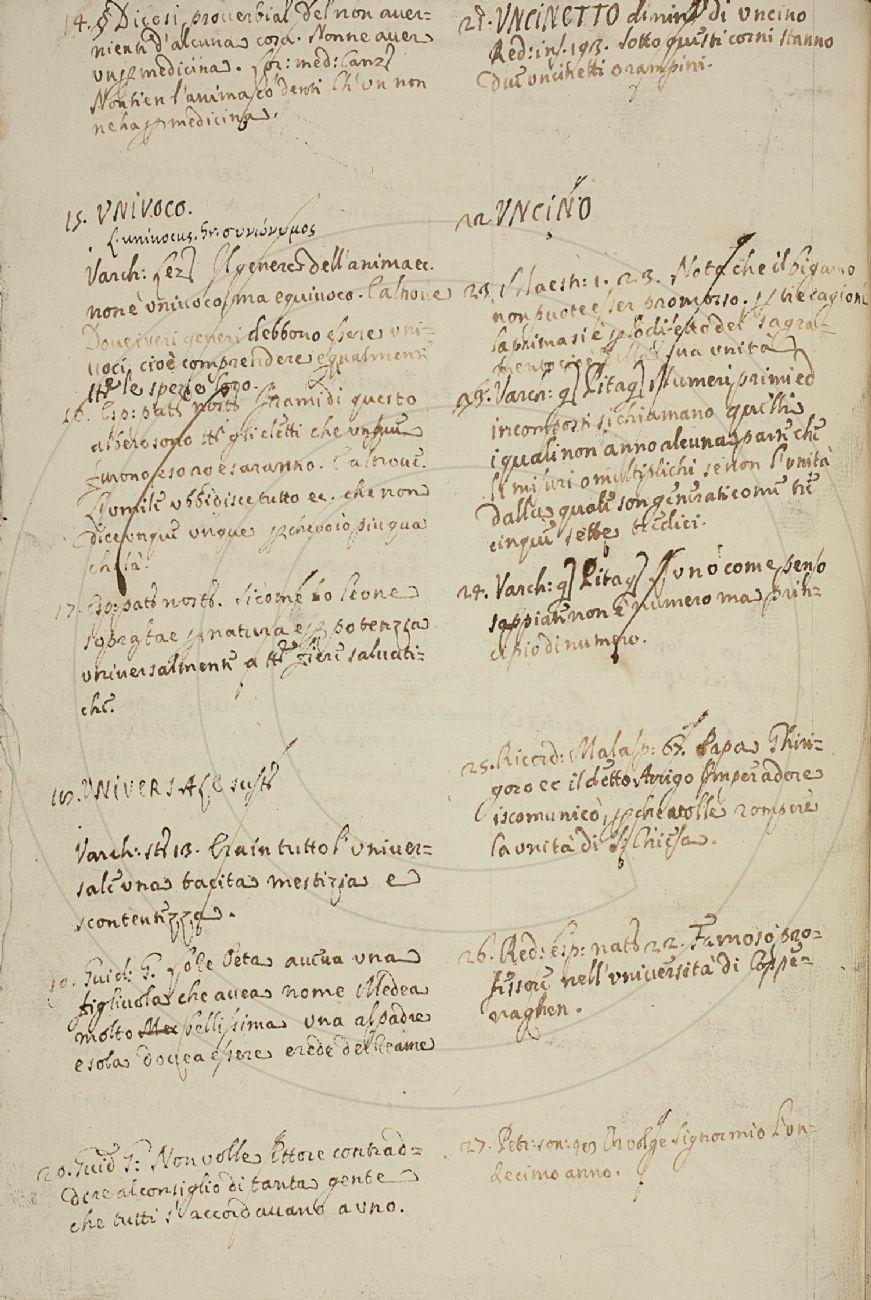 14. § Dicesi proverbial. del non aver=
nienti d'alcuna cosa. Nonne aver
una p medicina. Lor: med: Canz
Non tien l'anima co' denti Ch'un non
ne ha p medicina.
15. UNIVOCO.
L. univocus. Gr. συνώνυμος
Varch: Lez Il genere dell'anima ec.
non è univoco, ma equivoco. E altrove
Dove i veri generi debbono essere uni=
voci, cioè comprendere egualmente
tte le spezie loro.
16. Esp: pats nosts I rami di questo
albero sono tti gli eletti che unque
furono e sono e saranno. E altrove.
L'umile ubbidisce tutto ec. che non
dice unque p che
che là?
17. Esp: pats nosts. Sicome lo leone
sopra p natura e p potenzia
universalmente a tte fiere salvati=
che.
18. UNIVERSALE sust
Varch: st 13. Era in tutto l'univer=
sale una tacita mestizia e
scontentezza.
19. Guid: G. Lo Re Oeta aveva una
figliuola che avea nome Medea
molto bellissima una al padre
e sola doveva essere erede del Reame
20. Guid G: Non volle Ettore contrad=
dire al consiglio di tanta gente
che tutti s'accordavano a uno.
21. UNCINETTO dimin di uncino
Red: ins. 193. Sotto questi corni stanno
due uncinetti o rampini.
22 UNCINO
23. Maestr: 1. 23. Nota che il bigamo
non puote esser promosso. p tre cagioni
la prima si è p lo difetto del sagra=
mento cioè della sua unità
Varch: g Pitag Numeri primi ed
incomposti si chiamano quelli
i quali non anno alcuna parte che
li misuri o multiplichi se non l'unità
dalla quale son generati come tre
cinque sette tredici.
24. Varch: g Pitag L'uno come penso
sappiate non è numero ma prin=
cipio di numero.
25. Ricord: Malasp: 65. Papa Ghir=
goro ec il detto Arigo Imperadore
iscomunicò, p che volle rompere
la unità di S. Chiesa.
26. Red: Esp: nats 22. Famoso pro=
fessore nell'università di Coppe=
naghen.
27. Petr: son: Or volge Signor mio l'un=
decimo anno.